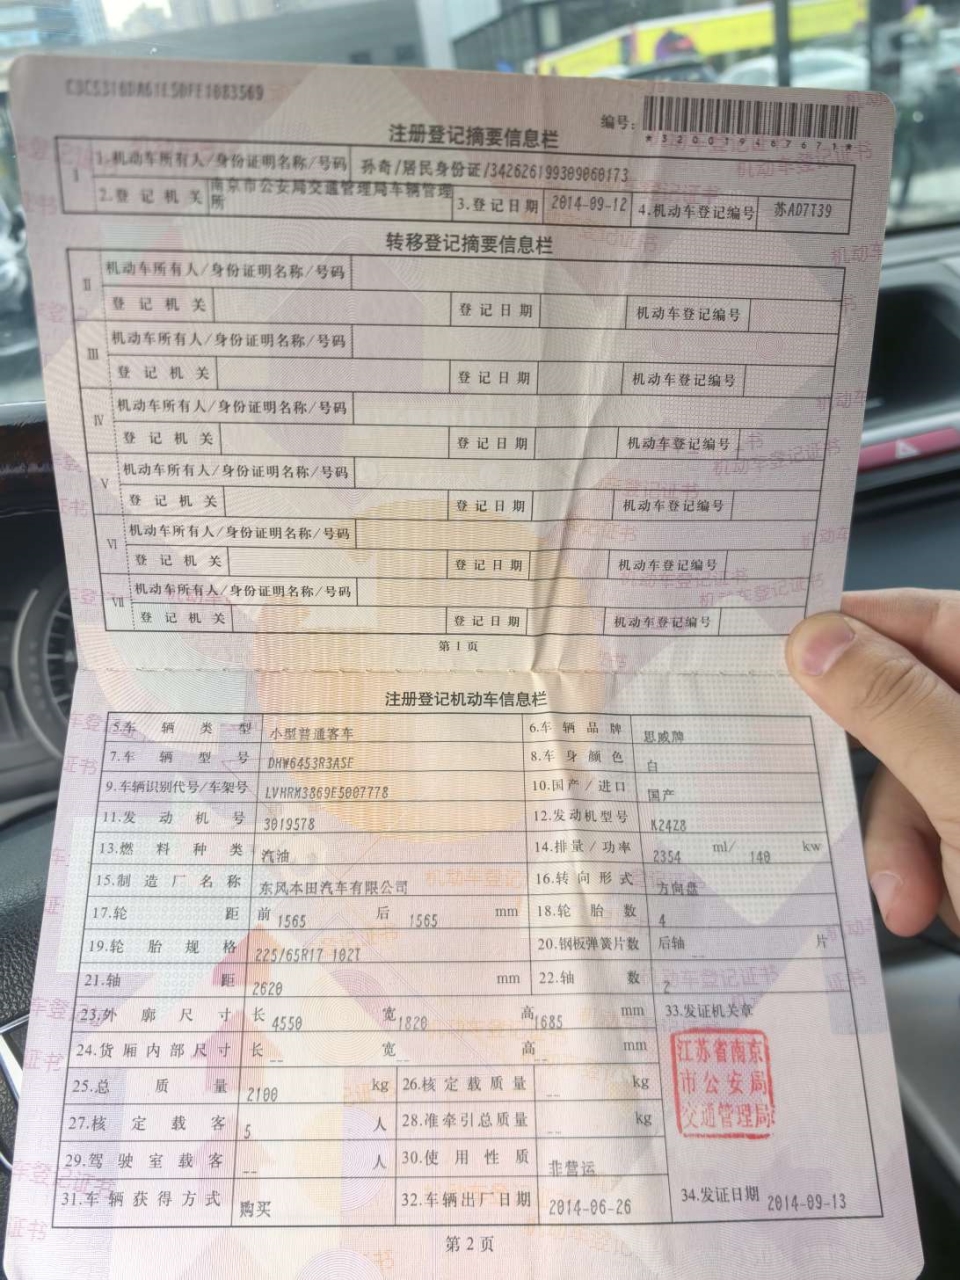 CBCS316DA61E50FE1083569
编号:
*320019467671*
注册登记摘要信息栏
I 1.机动车所有人/身份证明名称/号码 孙奇/居民身份证/342626199309060173
2.登记机关 南京市公安局交通管理局车辆管理所 3.登记日期 2014-09-12 4.机动车登记编号 苏AD7T39
转移登记摘要信息栏
II 机动车所有人/身份证明名称/号码
登记机关 登记日期 机动车登记编号
III 机动车所有人/身份证明名称/号码
登记机关 登记日期 机动车登记编号
IV 机动车所有人/身份证明名称/号码
登记机关 登记日期 机动车登记编号
V 机动车所有人/身份证明名称/号码
登记机关 登记日期 机动车登记编号
VI 机动车所有人/身份证明名称/号码
登记机关 登记日期 机动车登记编号
VII 机动车所有人/身份证明名称/号码
登记机关 登记日期 机动车登记编号
第1页
注册登记机动车信息栏
5.车辆类型 小型普通客车 6.车辆品牌 思威牌
7.车辆型号 DHW6453R3ASE 8.车身颜色 白
9.车辆识别代号/车架号 LVHRM3869E5007778 10.国产/进口 国产
11.发动机号 3019578 12.发动机型号 K24Z8
13.燃料种类 汽油 14.排量/功率 2354 ml/ 140 kw
15.制造厂名称 东风本田汽车有限公司 16.转向形式 方向盘
17.轮距 前 1565 后 1565 mm 18.轮胎数 4
19.轮胎规格 225/65R17 102T 20.钢板弹簧片数 后轴 -- 片
21.轴距 2620 mm 22.轴数 2
23.外廓尺寸 长 4550 宽 1820 高 1685 mm 33.发证机关章
24.货厢内部尺寸 长 -- 宽 -- 高 -- mm
江苏省南京
市公安局
交通管理局
25.总质量 2100 kg 26.核定载质量 -- kg
27.核定载客 5 人 28.准牵引总质量 -- kg
29.驾驶室载客 -- 人 30.使用性质 非营运
31.车辆获得方式 购买 32.车辆出厂日期 2014-06-26 34.发证日期 2014-09-13
第2页